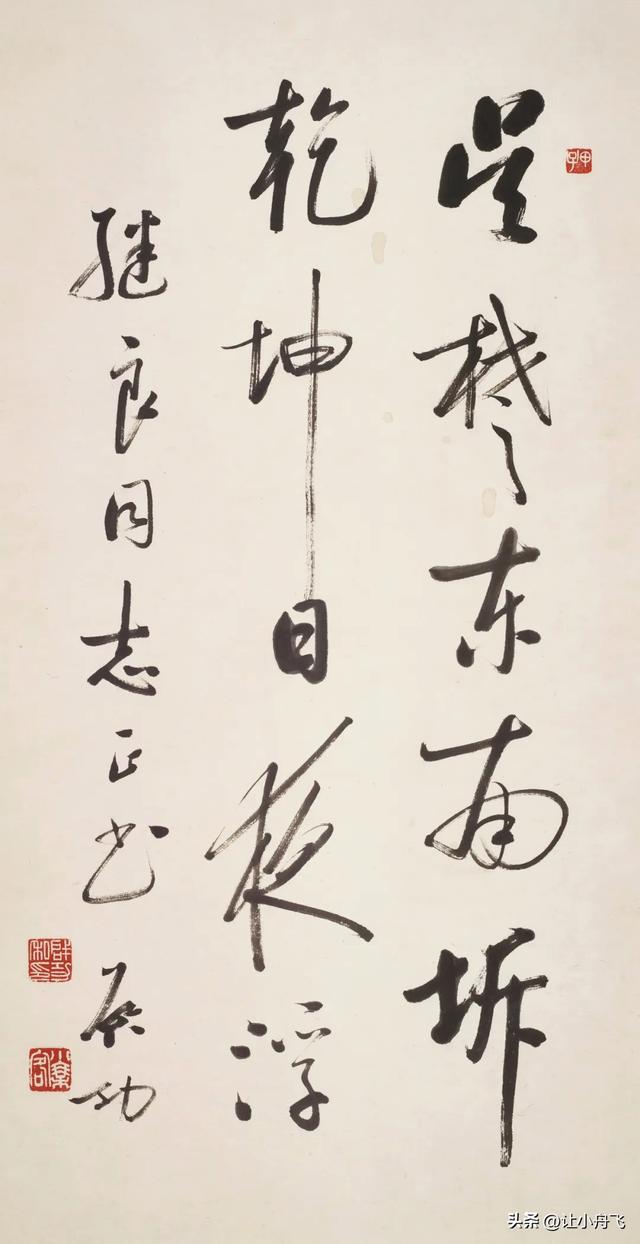 吴楚东南坼
乾坤日夜浮
继良同志正书 启功
头条 @让小舟飞